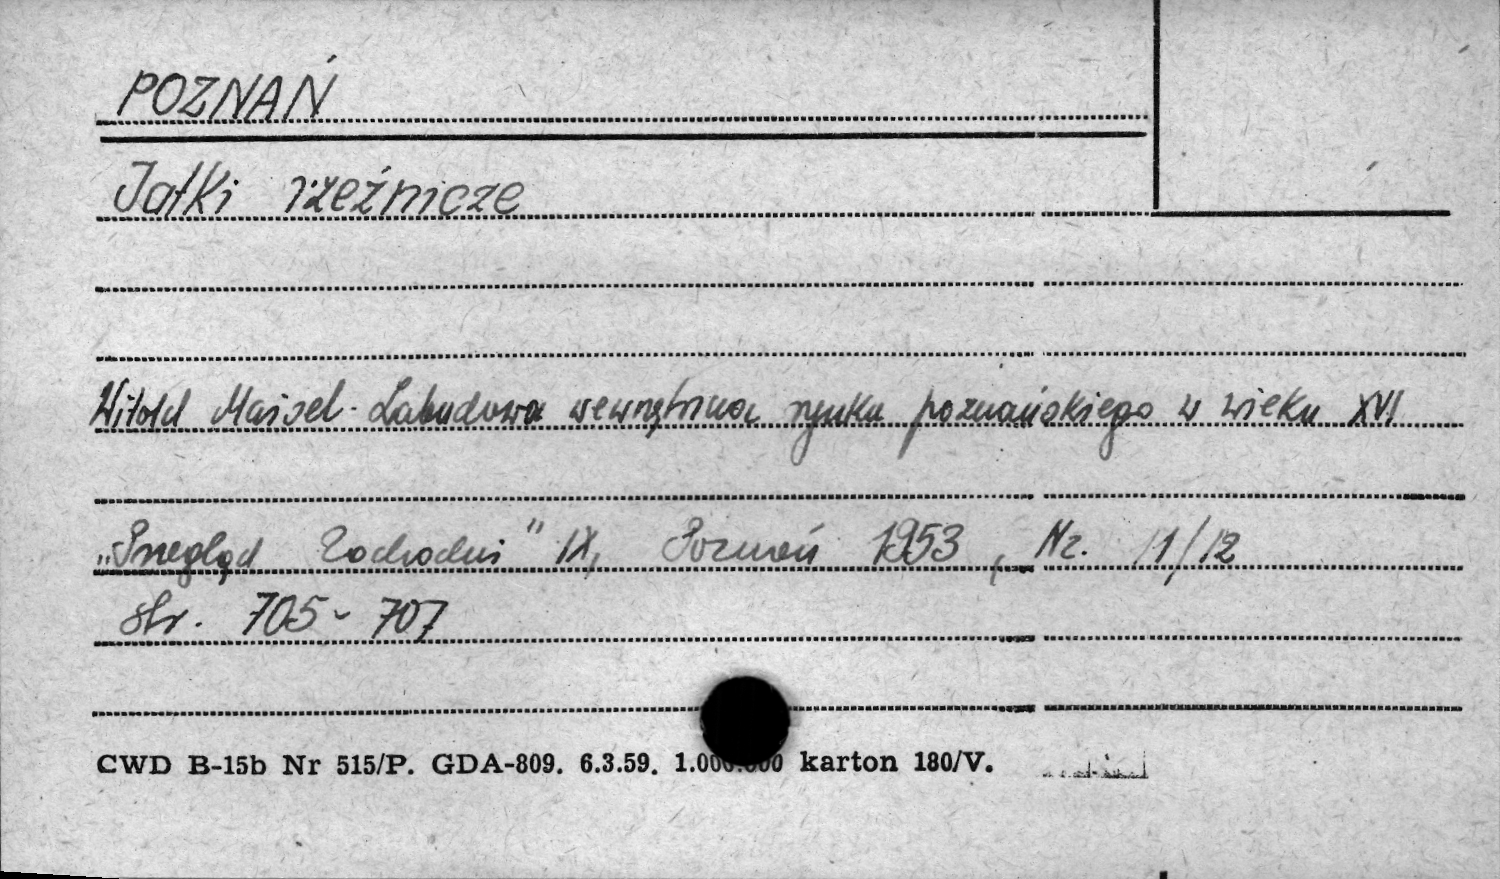 POZNAŃ
Jatki rzeźnicze
Witold Maisel - Zabudowa wewnętrzna rynku poznańskiego w wieku XVI
„Przegląd Zachodni" IX, Poznań 1953, Nr. 11/12
str. 705-707
CWD B-15b Nr 515/P. GDA-809. 6.3.59. 1.000.000 karton 180/V.